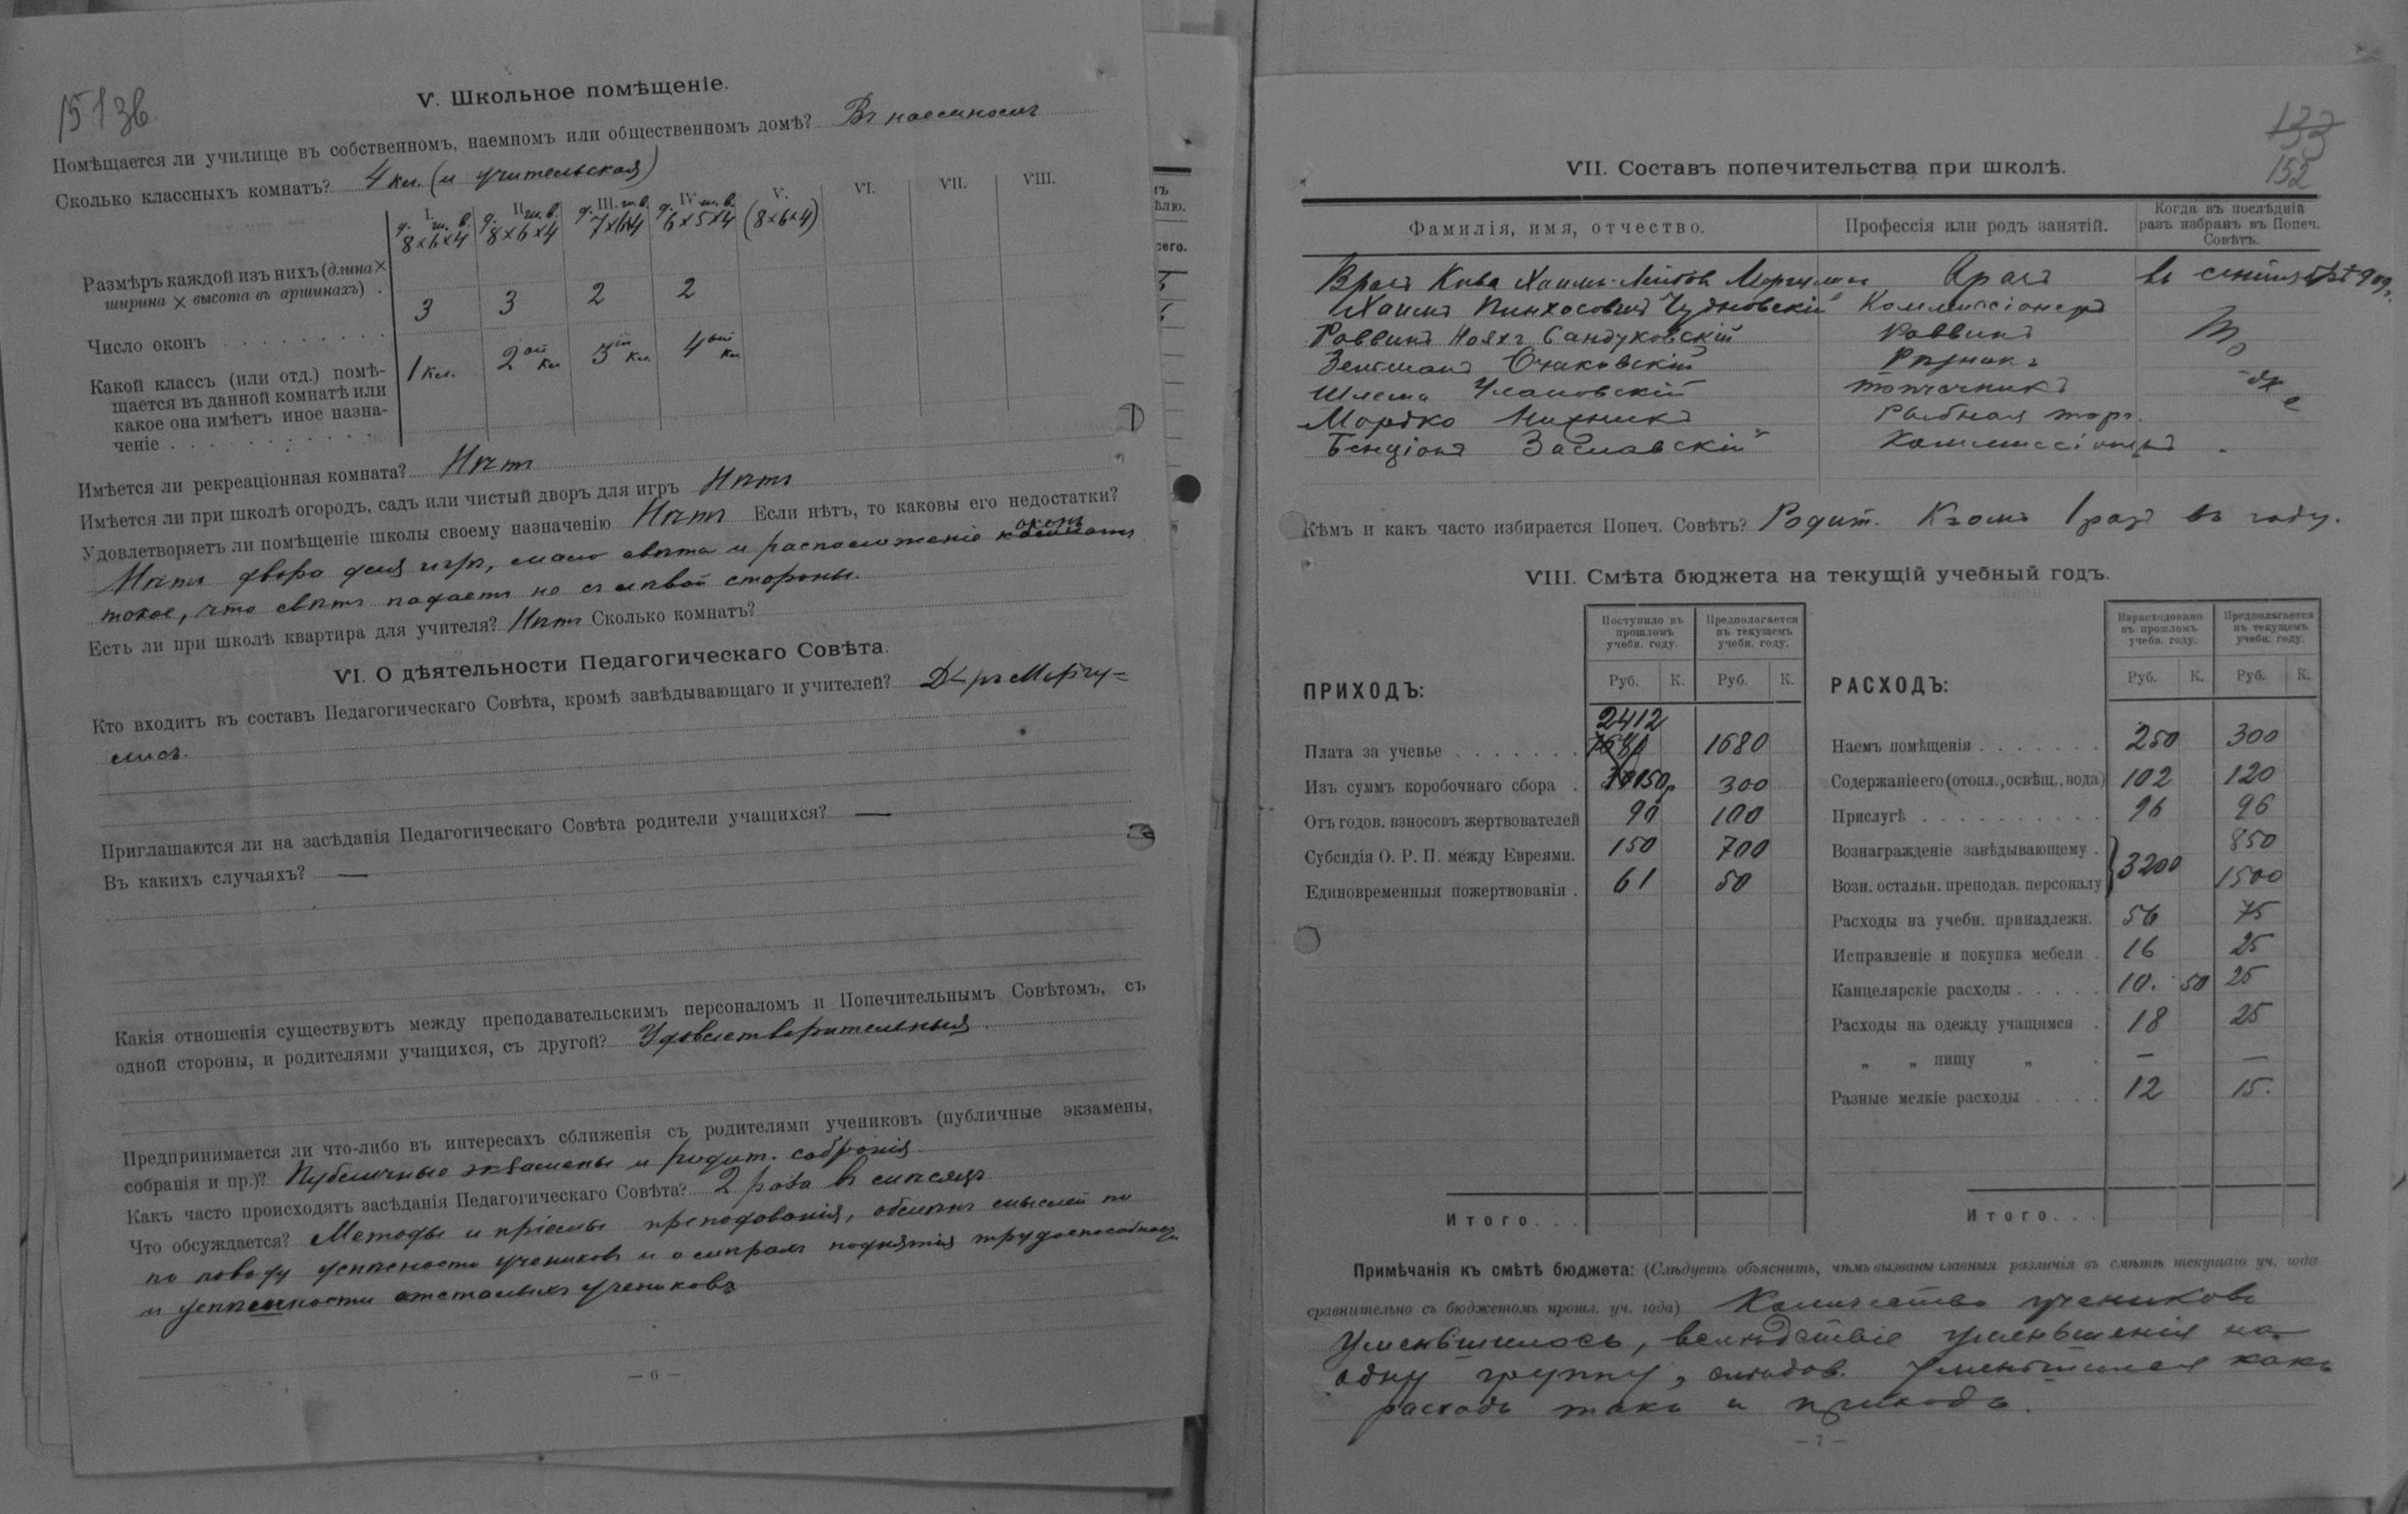 151 зв.
V. Школьное помѣщеніе.
Помѣщается ли училище въ собственномъ, наемномъ или общественномъ домѣ? Въ наемномъ
Сколько классныхъ комнатъ? 4 кл. (и учительская)
I. II. III. IV. V. VI. VII. VIII.
д. ш. в. д. ш. в. д. ш. в. д. ш. в.
Размѣръ каждой изъ нихъ (длина × 8×6×4 8×6×4 7×6×4 6×5×4 (8×6×4)
ширина × высота въ аршинахъ) .
Число оконъ 3 3 2 2
Какой классъ (или отд.) помѣ- 1 кл. 2ой кл 3ій кл. 4ый кл
щается въ данной комнатѣ или
какое она имѣетъ иное назна-
ченіе
Имѣется ли рекреаціонная комната? Нѣтъ
Имѣется ли при школѣ огородъ, садъ или чистый дворъ для игръ Нѣтъ
Удовлетворяетъ ли помѣщеніе школы своему назначенію Нѣтъ Если нѣтъ, то каковы его недостатки?
Нѣтъ двора для игръ, мало свѣта и расположеніе оконъ
такое, что свѣтъ падаетъ не съ лѣвой стороны.
Есть ли при школѣ квартира для учителя? Нѣтъ Сколько комнатъ?
VI. О дѣятельности Педагогическаго Совѣта.
Кто входитъ въ составъ Педагогическаго Совѣта, кромѣ завѣдывающаго и учителей? Д-ръ Маргу=
лисъ.
Приглашаются ли на засѣданія Педагогическаго Совѣта родители учащихся? —
Въ какихъ случаяхъ? —
Какія отношенія существуютъ между преподавательскимъ персоналомъ и Попечительнымъ Совѣтомъ, съ
одной стороны, и родителями учащихся, съ другой? Удовлетворительныя.
Предпринимается ли что-либо въ интересахъ сближенія съ родителями учениковъ (публичные экзамены,
собранія и пр.)? Публичные экзамены и родит. собранія.
Какъ часто происходятъ засѣданія Педагогическаго Совѣта? 2 раза въ мѣсяцъ
Что обсуждается? Методы и пріемы преподаванія, обмѣнъ мыслей по
по поводу успѣшности учениковъ и о мѣрахъ поднятія трудоспособности
и успѣшности отсталыхъ учениковъ
— 6 —
133
152
VII. Составъ попечительства при школѣ.
Фамилія, имя, отчество. Профессія или родъ занятій. Когда въ послѣдній
разъ избранъ въ Попеч.
Совѣтъ.
Врачъ Хаимъ Маргулисъ Врачъ въ сентябрѣ 909 г.
Хаимъ Пинхосовичъ Чудновскій Коммиссіонеръ
Раввинъ Нояхъ Сандуковскій Раввинъ То
Зельманъ Очаковскій Рѣзникъ
Шлема Улановскій же
Мордко Рыбная торг.
Бенціонъ Заславскій Коммиссіонеръ
Кѣмъ и какъ часто избирается Попеч. Совѣтъ? Родит. 1 разъ въ годъ.
VIII. Смѣта бюджета на текущій учебный годъ.
ПРИХОДЪ: Поступило въ прошломъ учебн. году. Предполагается въ текущемъ учебн. году. РАСХОДЪ: Израсходовано въ прошломъ учебн. году. Предполагается въ текущемъ учебн. году.
Руб. К. Руб. К. Руб. К. Руб. К.
Плата за ученье 2412 1680 Наемъ помѣщенія 250 300
Изъ суммъ коробочнаго сбора 150р 300 Содержаніе его (отопл., освѣщ., вода) 102 120
Отъ годов. взносовъ жертвователей 90 100 Прислугѣ 96 96
Субсидія О. Р. П. между Евреями. 150 700 Вознагражденіе завѣдывающему } 3200 850
Единовременныя пожертвованія 61 50 Возн. остальн. преподав. персоналу 1500
Расходы на учебн. принадлежн. 56 75
Исправленіе и покупка мебели 16 25
Канцелярскіе расходы 10. 50 25
Расходы на одежду учащимся 18 25
„ „ пищу „ — —
Разные мелкіе расходы 12 15.
Итого... Итого...
Примѣчанія къ смѣтѣ бюджета: (Слѣдуетъ объяснить, чѣмъ вызваны главныя различія въ смѣтѣ текущаго уч. года
сравнительно съ бюджетомъ прошл. уч. года) Количество учениковъ
уменьшилось, вслѣдствіе уменьшенія на
одну группу, слѣдов. уменьшился какъ
расходъ такъ и приходъ.
— 7 —